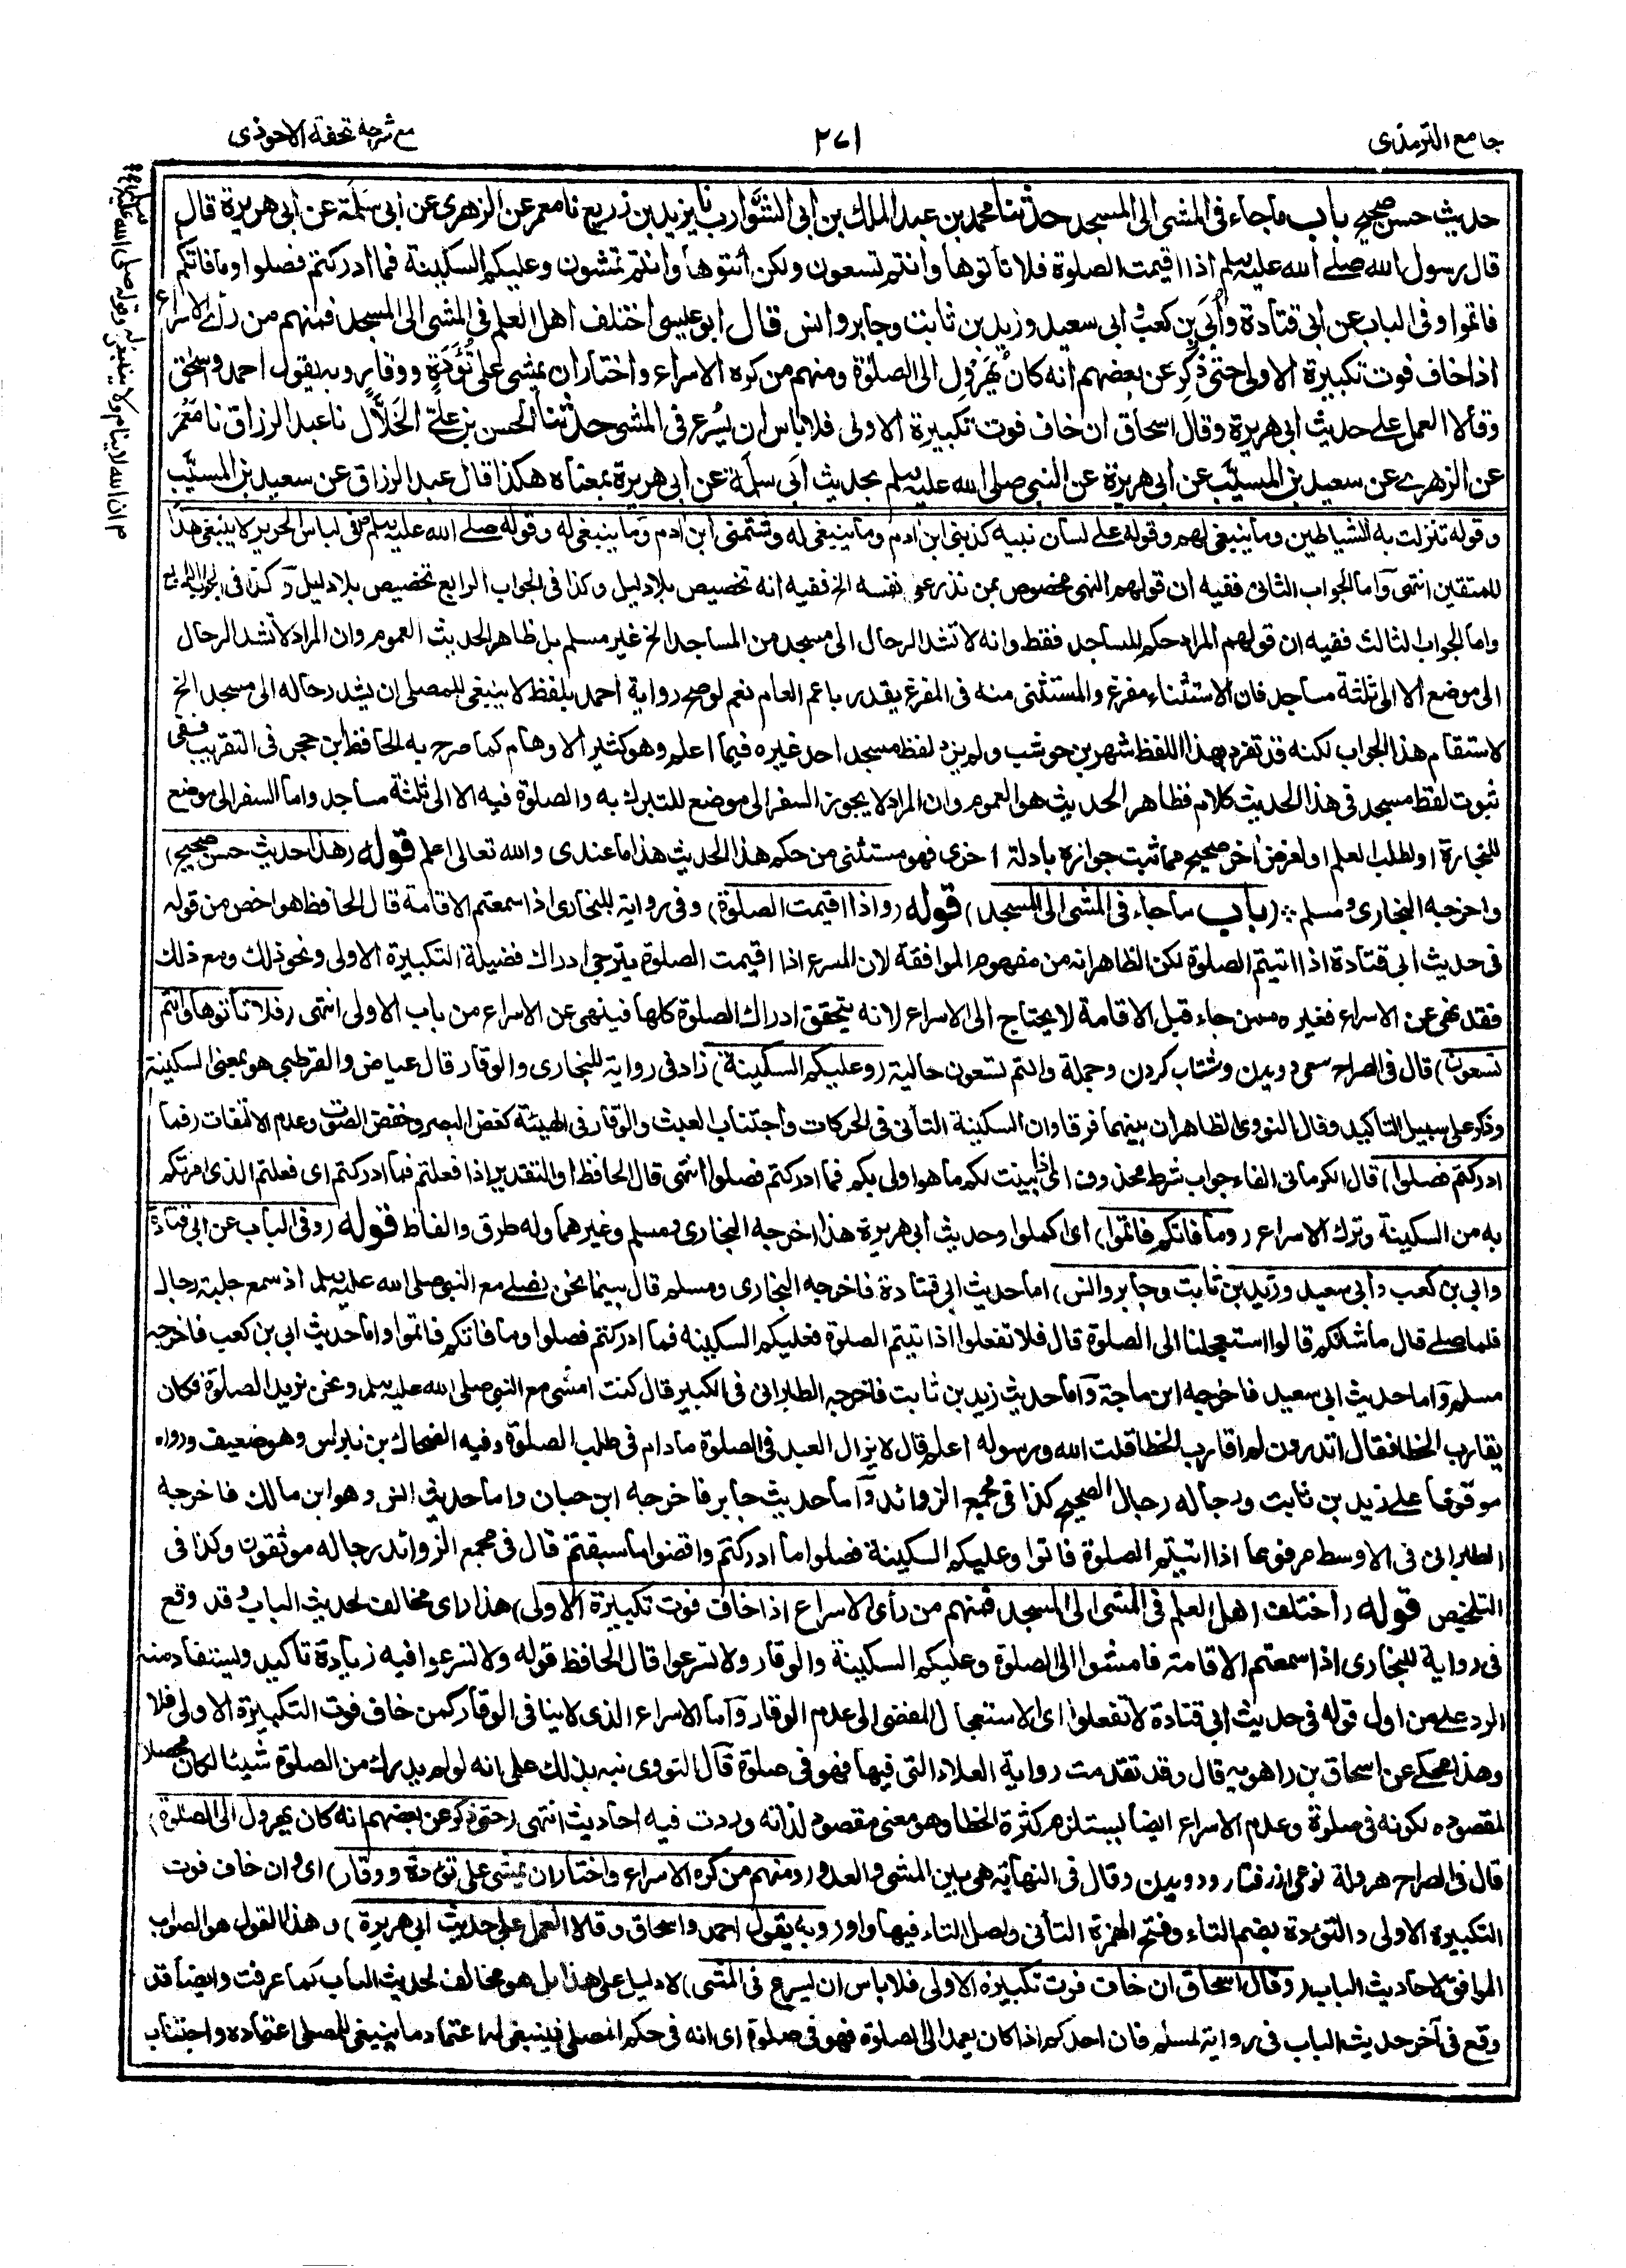 جامع الترمذى
٢٧١
مع شرحه تحفة الاحوذى
حديث حسن صحيح باب ماجاء فى المشى الى المسجد حدثنا محمد بن عبد الملك بن ابى الشَّوارب نا يزيد بن زريع نا معمر عن الزهرى عن ابى سَلَمَة عن ابى هريرة قال
قال رسول الله صلے الله عليه وسلم اذا اقيمت الصلوة فلا تأتوها وانتم تسعون ولكن ائتوها وانتم تمشون وعليكم السكينة فما ادركتم فصلوا وما فاتكم
فاتموا وفى الباب عن ابى قتادة وأُبَىّ بن كعب وابى سعيد وزيد بن ثابت وجابر وانس قال ابو عيسى اختلف اهل العلم فى المشى الى المسجد فمنهم من رأى الاسراع
اذا خاف فوت تكبيرة الاولى حتى ذُكِر عن بعضهم انه كان يُهَرْوِل الى الصلوة ومنهم من كره الاسراع واختار ان يمشى على تُؤَدَةٍ ووقارٍ وبه يقول احمد واسحٰق
وقالا العمل على حديث ابى هريرة وقال اسحاق ان خاف فوت تكبيرة الاولى فلا باس ان يُسرع فى المشى حدثنا الحسن بن علىّ الخَلَّال نا عبد الرزاق نا مَعْمَر
عن الزهرے عن سعيد بن المسيَّب عن ابى هريرة عن النبى صلى الله عليه وسلم بحديث ابى سلمة عن ابى هريرة بمعناه هكذا قال عبد الرزاق عن سعيد بن المسيَّب
وقوله تنزلت به الشياطين وما ينبغى لهم وقوله على لسان نبيه كذبنى ابن ادم وما ينبغى له وشتمنى ابن ادم وما ينبغى له وقوله صلے الله عليه وسلم فى لباس الحرير لا ينبغى هذا
للمتقين انتهى وَاما الجواب الثانى ففيه ان قولهم النهى مخصوص بمن نذر على نفسه الخ ففيه انه تخصيص بلا دليل وكذا فى الجواب الرابع تخصيص بلا دليل وكذا فى الجواب
واما الجواب الثالث ففيه ان قولهم المراد حكم المساجد فقط وانه لا تشد الرحال الى مسجد من المساجد الخ غير مسلم بل ظاهر الحديث العموم وان المراد لا تشد الرحال
الى موضع الا الى ثلثة مساجد فان الاستثناء مفرغ والمستثنى منه فى المفرغ يقدر باعم العام نعم لو صح رواية احمد بلفظ لا ينبغى للمصلى ان يشد رحاله الى مسجد الخ
لاستقام هذا الجواب لكنه قد تفرد بهذا اللفظ شهر بن حوشب ولم يزد لفظ مسجد احد غيره فيما اعلم وهو كثير الاوهام كما صرح به الحافظ ابن حجر فى التقريب ففى
ثبوت لفظ مسجد فى هذا الحديث كلام فظاهر الحديث هو العموم وان المراد لا يجوز السفر الى موضع للتبرك به والصلوة فيه الا الى ثلثة مساجد واما السفر الى موضع
للتجارة او لطلب العلم او لغرض اخر صحيح مما ثبت جوازه بادلة اخرى فهو مستثنى من حكم هذا الحديث هذا ما عندى والله تعالى اعلم قوله (هذا حديث حسن صحيح)
واخرجه البخارى ومسلم ؞ (باب ماجاء فى المشى الى المسجد) قوله (واذا اقيمت الصلوة) وفى رواية للبخارى اذا سمعتم الاقامة قال الحافظ هو اخص من قوله
فى حديث ابى قتادة اذا اتيتم الصلوة لكن الظاهر انه من مفهوم الموافقة لان المسرع اذا اقيمت الصلوة يترجى ادراك فضيلة التكبيرة الاولى ونحو ذلك ومع ذلك
فقد نهى عن الاسراع فغيره ممن جاء قبل الاقامة لا يحتاج الى الاسراع لانه يتحقق ادراك الصلوة كلها فينهى عن الاسراع من باب الاولى انتهى (فلا تأتوها وانتم
تسعون) قال فى الصراح سعى دويدن وشتاب كردن وجملة وانتم تسعون حالية (وعليكم السكينة) زاد فى رواية للبخارى والوقار قال عياض والقرطبى هو بمعنى السكينة
وذكر على سبيل التاكيد وقال النووى الظاهر ان بينهما فرقا وان السكينة التأنى فى الحركات واجتناب العبث والوقار فى الهيئة كغض البصر وخفض الصوت وعدم الالتفات (فما
ادركتم فصلوا) قال الكرمانى الفاء جواب شرط محذوف اى اذا بينت لكم ما هو اولى بكم فما ادركتم فصلوا انتهى قال الحافظ او التقدير اذا فعلتم فما ادركتم اى فعلتم الذى امرتكم
به من السكينة وترك الاسراع (وما فاتكم فاتموا) اى اكملوا وحديث ابى هريرة هذا اخرجه البخارى ومسلم وغيرهما وله طرق والفاظ قوله (وفى الباب عن ابى قتادة
وابى بن كعب وابى سعيد وزيد بن ثابت وجابر وانس) اما حديث ابى قتادة فاخرجه البخارى ومسلم قال بينما نحن نصلے مع النبى صلى الله عليه وسلم اذ سمع جلبة رجال
فلما صلے قال ما شانكم قالوا استعجلنا الى الصلوة قال فلا تفعلوا اذا تيتم الصلوة فعليكم السكينه فما ادركتم فصلوا وما فاتكم فاتموا واما حديث ابى بن كعب فاخرجه
مسلم وَاما حديث ابى سعيد فاخرجه ابن ماجة وَاما حديث زيد بن ثابت فاخرجه الطبرانى فى الكبير قال كنت امشى مع النبى صلى الله عليه وسلم ونحن نريد الصلوة فكان
يقارب الخطا فقال اتدرون لم اقارب الخطا قلت الله ورسوله اعلم قال لا يزال العبد فى الصلوة ما دام فى طلب الصلوة وفيه الضحاك بن نبراس وهو ضعيف ورواه
موقوفا على زيد بن ثابت ورجاله رجال الصحيح كذا فى مجمع الزوائد وَاما حديث جابر فاخرجه ابن حبان واما حديث انس وهو ابن مالك فاخرجه
الطبرانى فى الاوسط مرفوعا اذا اتيتم الصلوة فاتوا وعليكم السكينة فصلوا ما ادركتم واقضوا ما سبقتم قال فى مجمع الزوائد رجاله موثقون وكذا فى
التلخيص قوله (اختلف اهل العلم فى المشى الى المسجد فمنهم من رأى الاسراع اذا خاف فوت تكبيرة الاولى) هذا راى مخالف لحديث الباب وقد وقع
فى رواية للبخارى اذا سمعتم الاقامة فامشوا الى الصلوة وعليكم السكينة والوقار ولا تسرعوا قال الحافظ قوله ولا تسرعوا فيه زيادة تاكيد ويستفاد منه
الرد على من اول قوله فى حديث ابى قتادة لا تفعلوا اى الاستعجال المفضى الى عدم الوقار وَاما الاسراع الذى لا ينافى الوقار كمن خاف فوت التكبيرة الاولى فلا
وهذا محكى عن اسحاق بن راهويه قال وقد تقدمت رواية العلاء التى فيها فهو فى صلوة قَال النووى نبه بذلك على انه لو لم يدرك من الصلوة شيئا لكان محصلا
لمقصوده لكونه فى صلوة وعدم الاسراع ايضا يستلزم كثرة الخطا وهو معنى مقصود لذاته وردت فيه احاديث انتهى (حتى ذكر عن بعضهم انه كان يهرول الى الصلوة)
قال فى الصراح هرولة نوعى از رفتار ودويدن وقال فى النهاية هى بين المشى والعدو (ومنهم من كره الاسراع واختار ان يمشى على تؤدة ووقار) اى وان خاف فوت
التكبيرة الاولى والتؤدة بضم التاء وفتح الهمزة التأنى واصل التاء فيها واو (وبه يقول احمد واسحاق وقالا العمل على حديث ابى هريرة) وهذا القول هو الصواب
الموافق لاحاديث الباب (وقال اسحاق ان خاف فوت تكبيرة الاولى فلا باس ان يسرع فى المشى) لا دليل على هذا بل هو مخالف لحديث الباب كما عرفت وايضا قد
وقع فى آخر حديث الباب فى رواية لمسلم فان احدكم اذا كان يعمد الى الصلوة فهو فى صلوة اى انه فى حكم المصلى فينبغى له اعتماد ما ينبغى للمصلى اعتماده واجتناب
ان الله لا ينام ولا ينبغى له وقوله صلى الله عليه